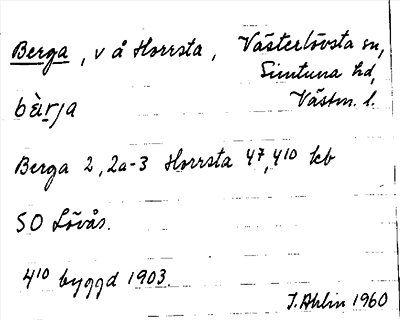 Berga, v å Horrsta, Västerlövsta sn,
Simtuna hd,
Västm. l.
bàrja
Berga 2, 2a-3 Horrsta 47, 410 kb
SO Lövås.
410 byggd 1903.
I. Ahlin 1960